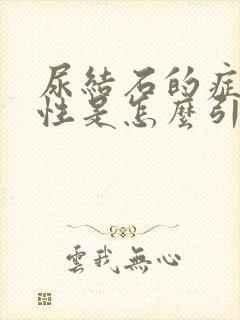 尿結石的症
性是怎麼引
雲我無心